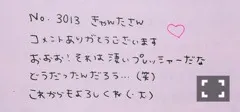 No. 3013 きゃんたさん
コメントありがとうございます
おおお！それは凄いプレッシャーだな
どうだったんだろう…(笑)
これからもよろしくね(・ᴗ・)